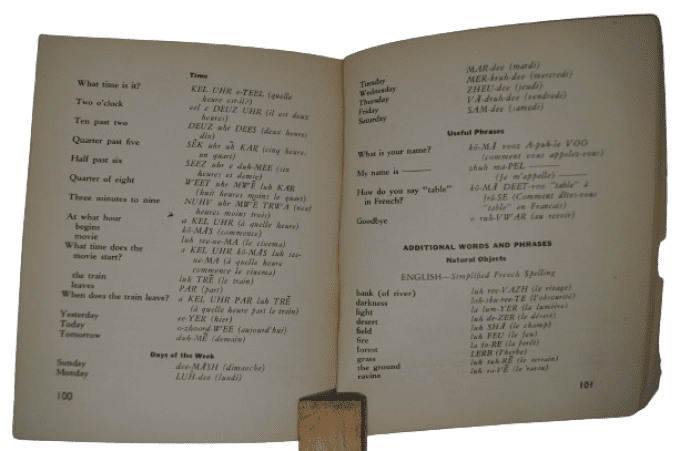 Time
What time is it? KEL UHR e-TEEL (quelle
heure est-il?)
Two o'clock eel e DEUZ UHR (il est deux
heures)
Ten past two DEUZ uhr DEES (deux heures
dix)
Quarter past five SĒK uhr uh KAR (cinq heures
un quart)
Half past six SEEZ uhr e duh-MEE (six
heures et demie)
Quarter of eight WEET uhr MWĒ luh KAR
(huit heures moins le quart)
Three minutes to nine NUHV uhr MWĒ TRWA (neuf
heures moins trois)
At what hour a KEL UHR (à quelle heure)
begins kō-MÃS (commence)
movie luh see-ne-MA (le cinema)
What time does the a KEL UHR kō-MÃS luh see-
movie start? ne-MA (à quelle heure
commence le cinema)
the train luh TRĒ (le train)
leaves PAR (part)
When does the train leave? a KEL UHR PAR luh TRĒ
(à quelle heure part le train)
Yesterday ee-YER (hier)
Today o-zhoord-WEE (aujourd'hui)
Tomorrow duh-MĒ (demain)
Days of the Week
Sunday dee-MÃSH (dimasche)
Monday LUH-dee (lundi)
100
Tuesday MAR-dee (mardi)
Wednesday MER-kruh-dee (mercredi)
Thursday ZHEU-dee (jeudi)
Friday VÃ-druh-dee (vendredi)
Saturday SAM-dee (samedi)
Useful Phrases
What is your name? kō-MÃ vooz A-puh-le VOO
(comment vous appelez-vous)
My name is —— zhuh ma-PEL ——
(Je m'appelle) ——
How do you say "table" kō-MÃ DEET-voo "table" ã
in French? frã-SE (Comment dites-vous
"table" en Francais)
Goodbye o ruh-VWAR (au revoir)
ADDITIONAL WORDS AND PHRASES
Natural Objects
ENGLISH—Simplified French Spelling
bank (of river) luh ree-VAZH (le rivage)
darkness lob-sku-ree-TE (l'obscurité)
light la lum-YER (la lumière)
desert luh de-ZER (le désert)
field luh SHÃ (le champ)
fire luh FEU (le feu)
forest la fo-RE (la forêt)
grass LERB (l'herbe)
the ground luh tuh-RĒ (le terrain)
ravine luh ra-VĒ (le ravin)
101